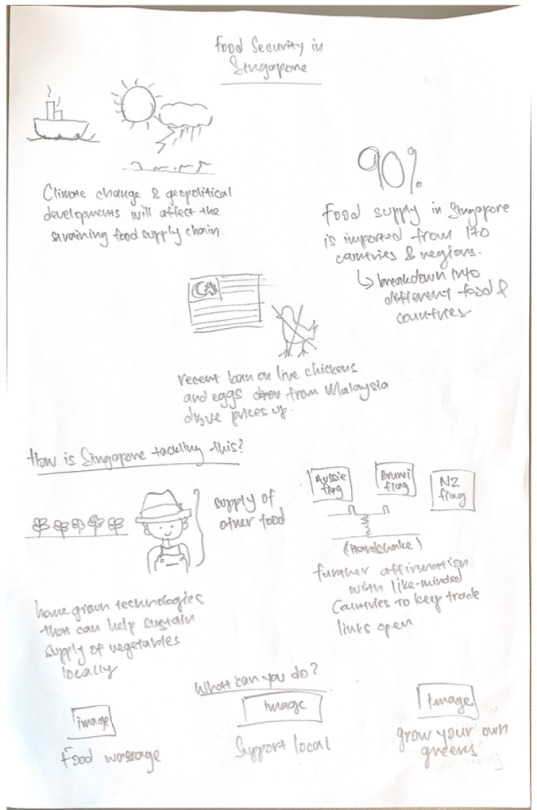 Food Security in
Singapore
Climate change & geopolitical
developments will affect the
straining food supply chain.
90%
Food supply in Singapore
is imported from 170
countries & regions.
↳ breakdown into
different food &
countries.
recent ban on live chickens
and eggs from Malaysia
drive prices up.
How is Singapore tackling this?
supply of
other food
home grown technologies
that can help sustain
supply of vegetables
locally
Aussie
flag
Brunei
flag
NZ
flag
(Handshake)
further affirmation
with like-minded
countries to keep trade
links open
What can you do?
image
Food wastage
Image
Support local
Image
grow your own
greens